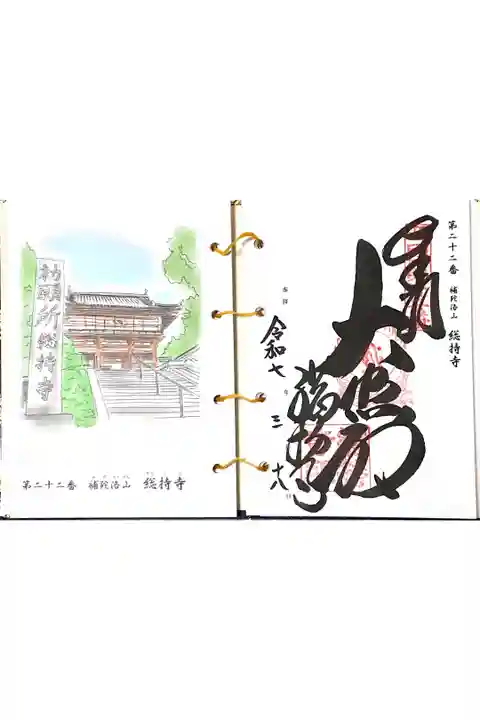 勅願所総持寺
第二十二番 補陀洛山 総持寺
第二十二番 補陀洛山 総持寺
大悲殿
総持寺
奉拝
令和七年三月十八日